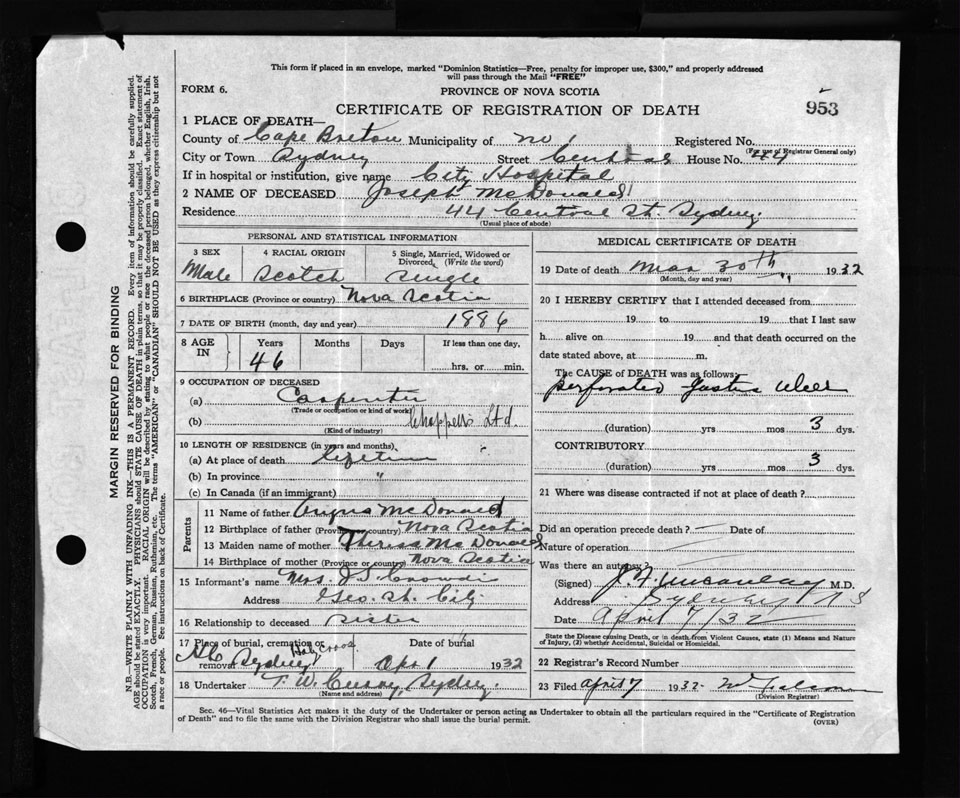 This form if placed in an envelope, marked "Dominion Statistics—Free, penalty for improper use, $300," and properly addressed
will pass through the Mail "FREE"
FORM 6.
PROVINCE OF NOVA SCOTIA
CERTIFICATE OF REGISTRATION OF DEATH
953
1 PLACE OF DEATH—
County of Cape Breton Municipality of No 1 Registered No.
(For use of Registrar General only)
City or Town Sydney Street Central House No. 44
If in hospital or institution, give name City Hospital
2 NAME OF DECEASED Joseph McDonald
Residence 44 Central St. Sydney
(Usual place of abode)
PERSONAL AND STATISTICAL INFORMATION
3 SEX 4 RACIAL ORIGIN 5 Single, Married, Widowed or Divorced (Write the word)
Male Scotch Single
6 BIRTHPLACE (Province or country) Nova Scotia
7 DATE OF BIRTH (month, day and year) 1886
8 AGE IN Years Months Days If less than one day,
46 hrs. or min.
9 OCCUPATION OF DECEASED
(a) Carpenter
(Trade or occupation or kind of work)
(b) Chappells Ltd.
(Kind of industry)
10 LENGTH OF RESIDENCE (in years and months)
(a) At place of death lifetime
(b) In province "
(c) In Canada (if an immigrant)
Parents
11 Name of father Angus McDonald
12 Birthplace of father (Province or country) Nova Scotia
13 Maiden name of mother Theresa McDonald
14 Birthplace of mother (Province or country) Nova Scotia
15 Informant's name Mrs. J. S.
Address Geo. St. City
16 Relationship to deceased Sister
17 Place of burial, cremation or removal Date of burial
Holy Cross
Sydney Apr 1 1932
18 Undertaker T. W. Curry, Sydney.
(Name and address)
MEDICAL CERTIFICATE OF DEATH
19 Date of death Mar 30th 1932
(Month, day and year)
20 I HEREBY CERTIFY that I attended deceased from
19 to 19 that I last saw
h alive on 19 and that death occurred on the
date stated above, at m.
The CAUSE of DEATH was as follows:
perforated gastric ulcer
(duration) yrs mos 3 dys.
CONTRIBUTORY
(duration) yrs mos 3 dys.
21 Where was disease contracted if not at place of death?
Did an operation precede death? — Date of
Nature of operation
Was there an autopsy?
(Signed) M.D.
Address Sydney N S
Date April 7/32
State the Disease causing Death, or in death from Violent Causes, state (1) Means and Nature
of Injury, (2) whether Accidental, Suicidal or Homicidal.
22 Registrar's Record Number
23 Filed April 7 1932
(Division Registrar)
Sec. 46—Vital Statistics Act makes it the duty of the Undertaker or person acting as Undertaker to obtain all the particulars required in the "Certificate of Registration
of Death" and to file the same with the Division Registrar who shall issue the burial permit.
(OVER)
MARGIN RESERVED FOR BINDING
N.B.—WRITE PLAINLY WITH UNFADING INK—THIS IS A PERMANENT RECORD. Every item of information should be carefully supplied.
AGE should be stated EXACTLY. PHYSICIANS should STATE CAUSE OF DEATH in plain terms, so that it may be properly classified. Exact statement of
OCCUPATION is very important. RACIAL ORIGIN will be described by stating to what people or race the deceased person belonged, whether English, Irish,
Scotch, French, German, Russian, Ruthenian, etc. The terms "AMERICAN" or "CANADIAN" SHOULD NOT BE USED as they express citizenship but not
a race or people. See instructions on back of Certificate.